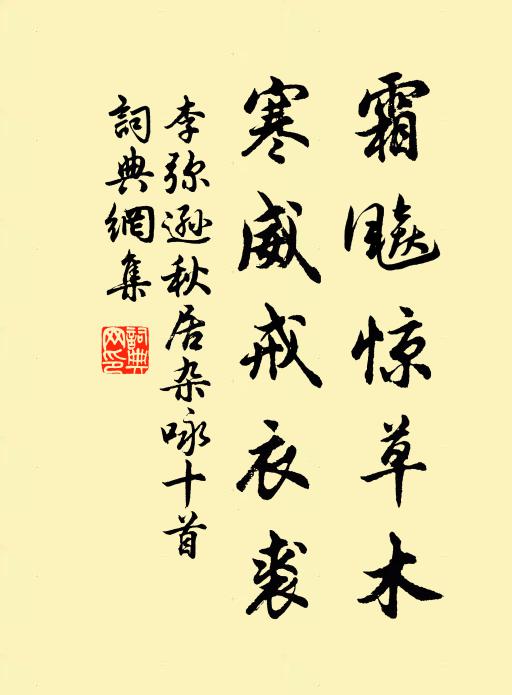 霜飈惊草木
寒威戒衣裘
李弥逊秋居杂咏十首
詞典網集
詞典
网印